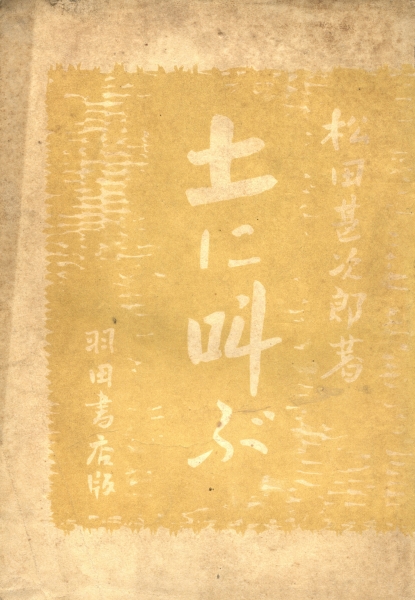 松田甚次郎著
土に叫ぶ
羽田書店版